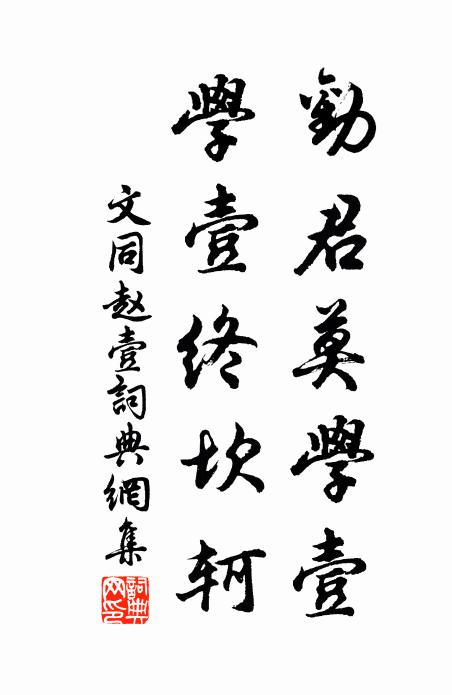 勸君莫學壹
學壹終坎軻
文同赵壹詞典網集
詞典網印